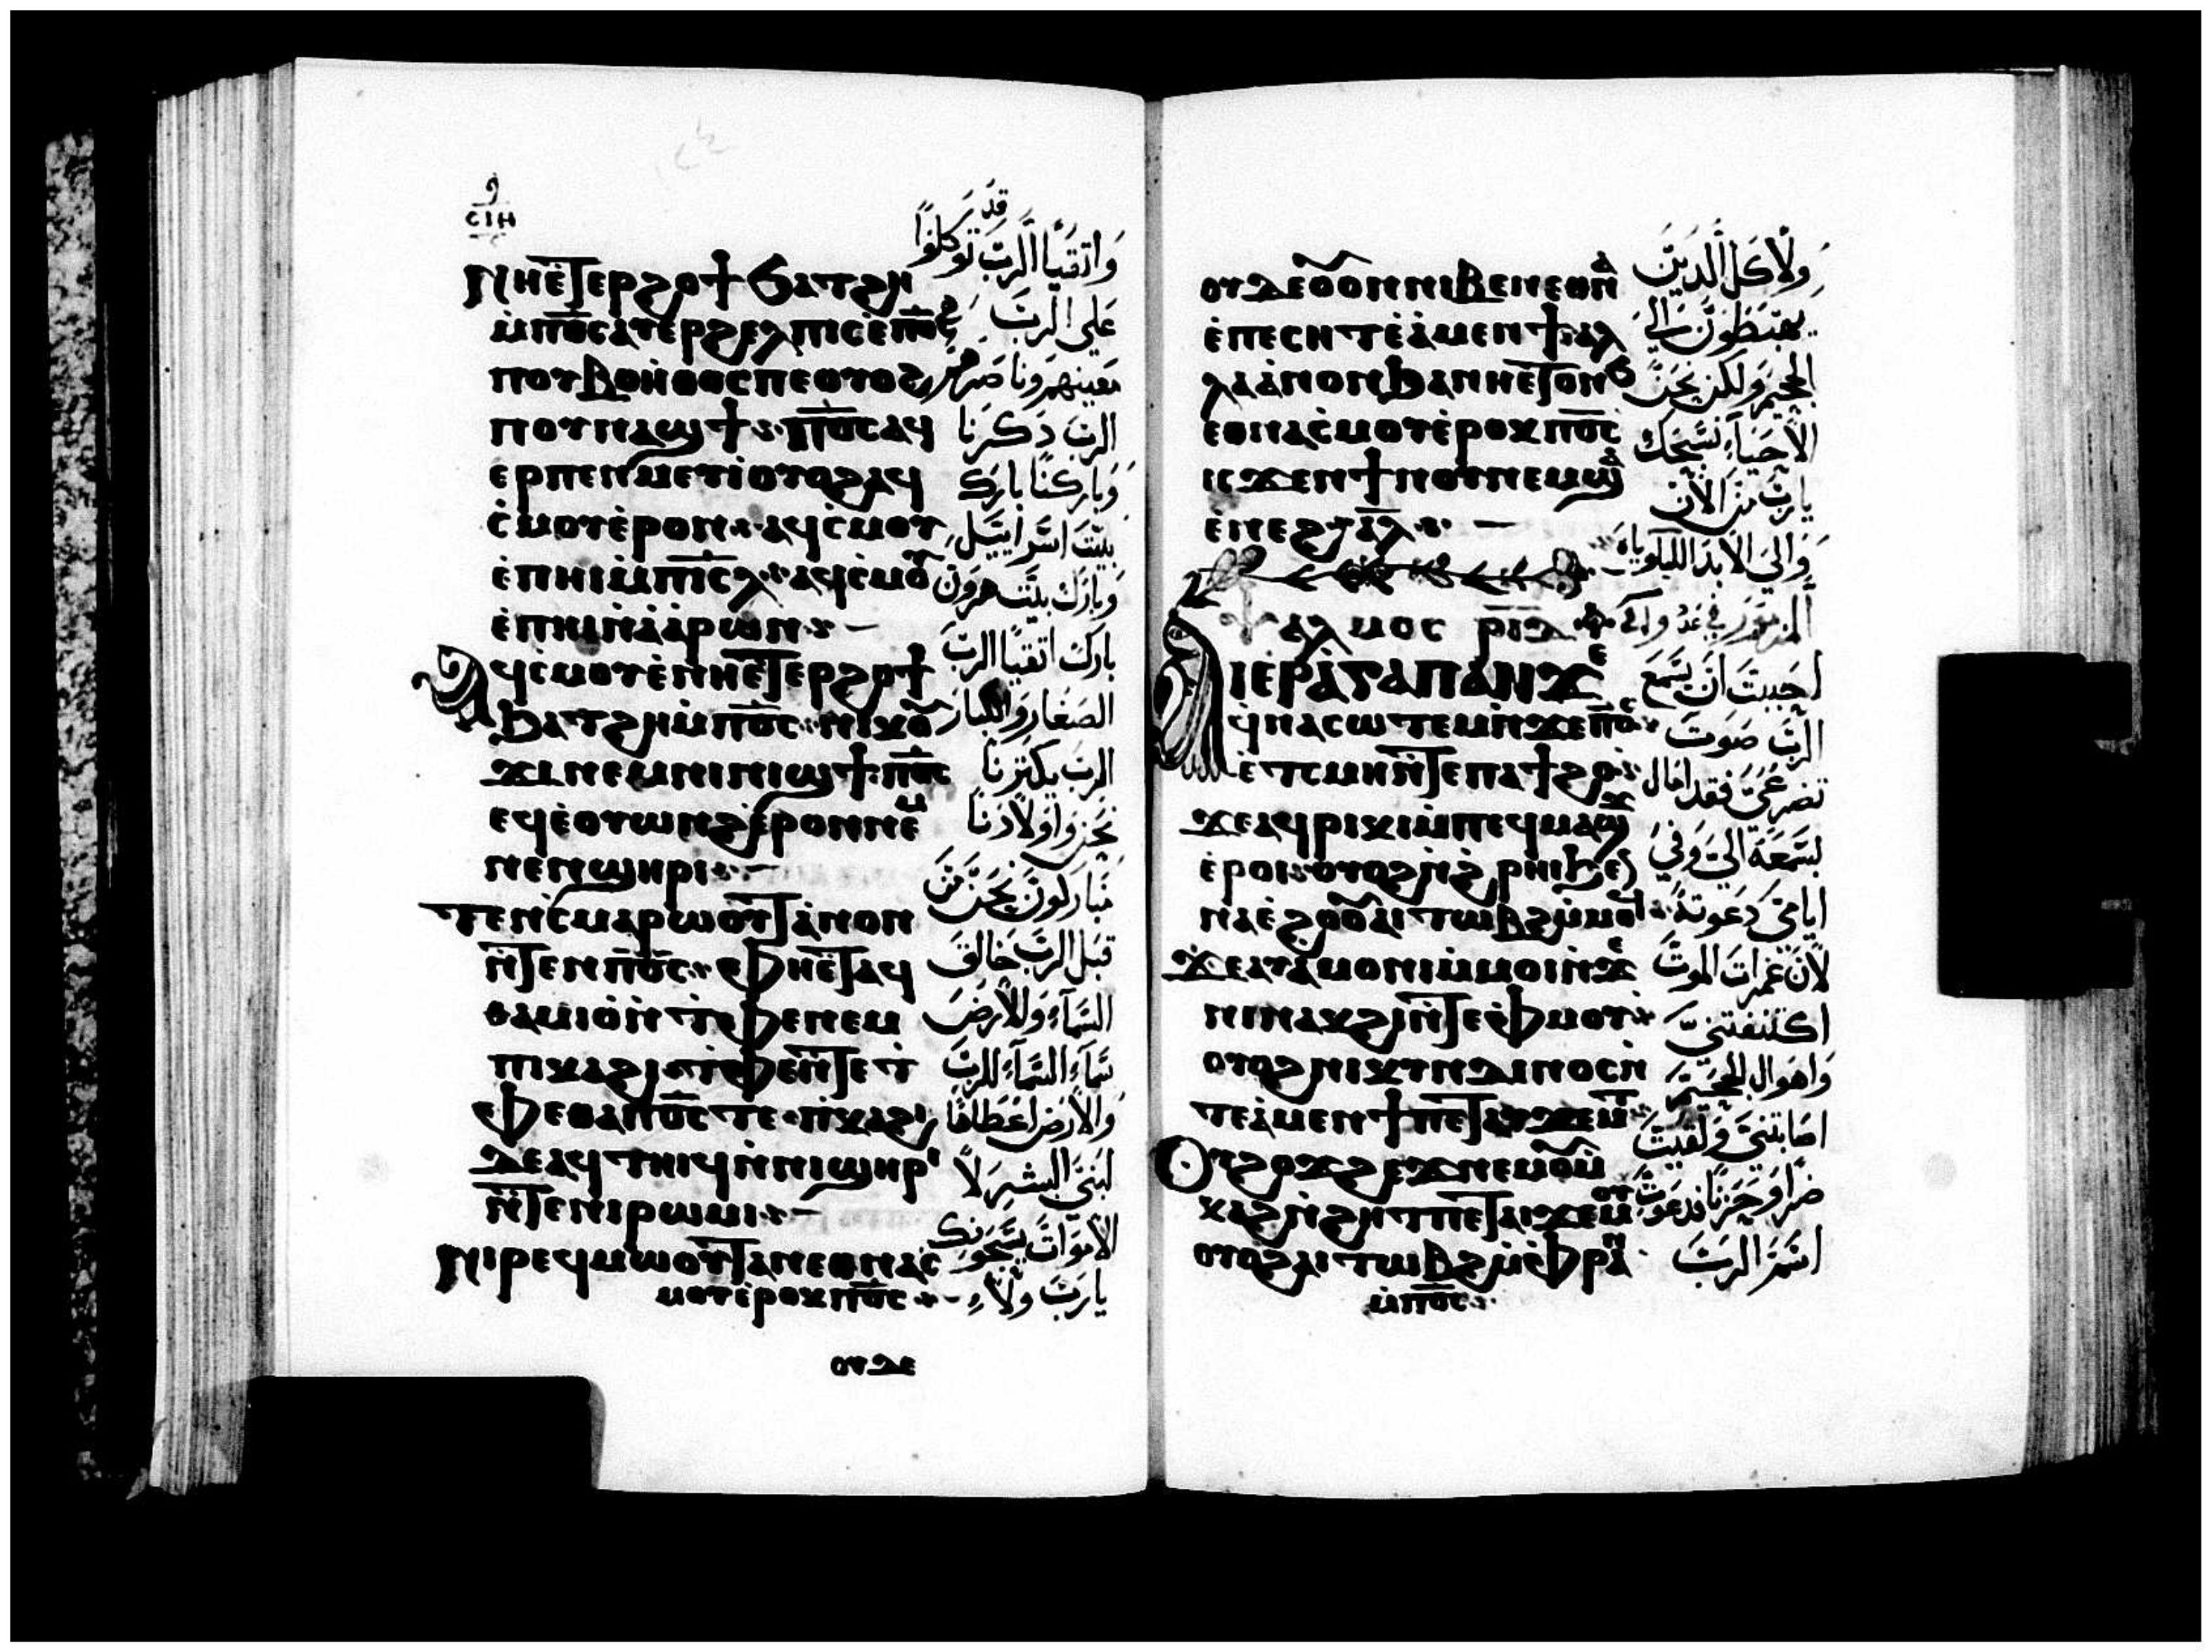 ⲥⲓⲏ
ⲛⲏⲉ̅ⲧⲉⲣϩⲟϯ ϧⲁⲧϩⲏ
ⲙ̀ⲡ̅ⲟ̅ⲥ̅ ⲁⲩⲉⲣϩⲉⲗⲡⲓⲥ ⲉ̀ⲡ̅ⲟ̅ⲥ̅
ⲡⲟⲩⲃⲟⲏ̀ⲑⲟⲥ ⲡⲉ ⲟⲩⲟϩ
ⲡⲟⲩⲛⲁϣϯ ⲡ̅ⲟ̅ⲥ̅ ⲁϥ
ⲉⲣⲡⲉⲛⲙⲉⲩⲓ̀ ⲟⲩⲟϩ ⲁϥ
ⲥ̀ⲙⲟⲩ ⲉ̀ⲣⲟⲛ ⲁϥⲥ̀ⲙⲟⲩ
ⲉ̀ⲡⲏⲓ ⲙ̀ⲡⲓ̅ⲥ̅ⲗ̅ ⲁϥⲥ̀ⲙⲟⲩ
ⲉ̀ⲡⲏⲓ ⲛ̀ⲁ̀ⲁ̀ⲣⲱⲛ
ⲁϥⲥ̀ⲙⲟⲩ ⲉ̀ⲛⲏⲉ̅ⲧⲉⲣϩⲟϯ
ϧⲁⲧϩⲏ ⲙ̀ⲡ̅ⲟ̅ⲥ̅ ⲛⲓⲕⲟⲩ
ϫⲓ ⲛⲉⲙ ⲛⲓⲛⲓϣϯ ⲡ̅ⲟ̅ⲥ̅
ⲉϥⲉ̀ⲟⲩⲱⲛϩ ⲉ̀ⲣⲟⲛ ⲛⲉⲙ
ⲛⲉⲛϣⲏⲣⲓ
ⲧⲉⲛⲥ̀ⲙⲁⲣⲱⲟⲩⲧ ⲁ̀ⲛⲟⲛ
ⲛ̀ⲧⲉⲛ ⲡ̅ⲟ̅ⲥ̅ ⲫⲏⲉ̅ⲧⲁϥ
ⲑⲁⲙⲓⲟ̀ ⲛ̀ⲧ̀ⲫⲉ ⲛⲉⲙ
ⲡⲓⲕⲁϩⲓ ⲧ̀ⲫⲉ ⲛ̀ⲧⲉ ⲧ
ⲫⲉ ⲑⲁ ⲡ̅ⲟ̅ⲥ̅ ⲧⲉ ⲡⲓⲕⲁϩⲓ
ⲇⲉ ⲁϥⲧⲏⲓϥ ⲛ̀ⲛⲓϣⲏⲣⲓ
ⲛ̀ⲧⲉ ⲛⲓⲣⲱⲙⲓ
ⲛⲓⲣⲉϥⲙⲱⲟⲩⲧ ⲁⲛ ⲉⲑⲛⲁⲥ̀
ⲙⲟⲩ ⲉ̀ⲣⲟⲕ ⲡ̅ⲟ̅ⲥ̅
ⲟⲩⲇⲉ
وَاتقيَا الرَّب قد توكلوُا
عَلي الرَبّ
مَعينهم وَناصَرهم
الربّ ذكرنَا
وَبَاركنَا بَارك
بيتَ اسَرايَيل
وَبَارَك بيتَ هرَوَن
بارك اتقيَا الربّ
الصَغار وَالكبَار
الربّ يكترنَا
نحَن وَاوَلادَنا
مَبارَكوَن نحَن مَن
قبَل الربّ خَالق
السَمآءِ وَالارَض
سَمآءِ السَمآءِ للربّ
وَالارَض اعَطاهَا
لبَني البشر لاَ
الاموَات يسَبحَونك
يارَبّ وَلاَ
ⲟⲩⲇⲉ ⲟⲩⲟⲛ ⲛⲓⲃⲉⲛ ⲉⲑⲛⲁ
ⲉ̀ⲡⲉⲥⲏⲧ ⲉ̀ⲁ̀ⲙⲉⲛϯ ⲁⲗ
ⲗⲁ ⲁ̀ⲛⲟⲛ ϧⲁ ⲛⲏⲉ̅ⲧⲟⲛϧ
ⲉⲑⲛⲁⲥ̀ⲙⲟⲩ ⲉ̀ⲣⲟⲕ ⲡ̅ⲟ̅ⲥ̅
ⲓⲥϫⲉⲛ ϯⲛⲟⲩ ⲛⲉⲙ ϣⲁ
ⲉ̀ⲛⲉϩ ⲁ̅ⲗ̅
ⲯⲁⲗⲙⲟⲥ ⲣ̅ⲓ̅ⲇ̅
ⲁⲓⲉⲣⲁ̀ⲅⲁⲡⲁⲛ ϫⲉ
ϥ̀ⲛⲁⲥⲱⲧⲉⲙ ⲛ̀ϫⲉ ⲡ̅ⲟ̅ⲥ̅
ⲉ̀ⲧ̀ⲥⲙⲏ ⲛ̀ⲧⲉ ⲡⲁϯϩⲟ
ϫⲉ ⲁϥⲣⲓⲕⲓ ⲙ̀ⲡⲉϥⲙⲁϣϫ
ⲉ̀ⲣⲟⲓ ⲟⲩⲟϩ ⲛ̀ϩ̀ⲣⲏⲓ ϧⲉⲛ
ⲛⲁⲉ̀ϩⲟⲟⲩ ⲁⲓⲧⲱⲃϩ ⲙ̀ⲙⲟϥ
ϫⲉ ⲁⲩⲁ̀ⲙⲟⲛⲓ ⲙ̀ⲙⲟⲓ ⲛ̀ϫⲉ
ⲛⲓⲛⲁⲕϩⲓ ⲛ̀ⲧⲉ ⲫ̀ⲙⲟⲩ
ⲟⲩⲟϩ ⲛⲓⲕⲩⲛⲇⲓⲛⲟⲥ ⲛ̀
ⲧⲉ ⲁ̀ⲙⲉⲛϯ ⲡⲉⲧⲁⲩϫⲉⲙⲧ
ⲟⲩϩⲟϫϩⲉϫ ⲛⲉⲙ ⲟⲩⲙ̀
ⲕⲁϩ ⲛ̀ϩⲏⲧ ⲡⲉⲧⲁⲓϫⲉⲙⲟⲩ
ⲟⲩⲟϩ ⲁⲓⲧⲱⲃϩ ⲙ̀ⲫ̀ⲣⲁⲛ
ⲙ̀ⲡ̅ⲟ̅ⲥ̅
وَلاَ كل الَّذينَ
يهبَطوَن الي
الجحَيم وَلكن نحَن
الاحَيآءِ نسَبحَك
يارَبّ مَن الآن
وَالي الابَد الليلويَاه
المزمَور
احَببتَ ان يسَمَع
الربّ صَوت
تضرعَي فقد امَال
سَمَعَه اليَ وَفي
ايامَي دَعَوته
لاَن غمرات الموَت
اكتنفتني
وَاهوَال الجحَيم
اصَابتني وَلقيتَ
ضرًا وَحَزنًا فدعَوت
اسَم الربّ